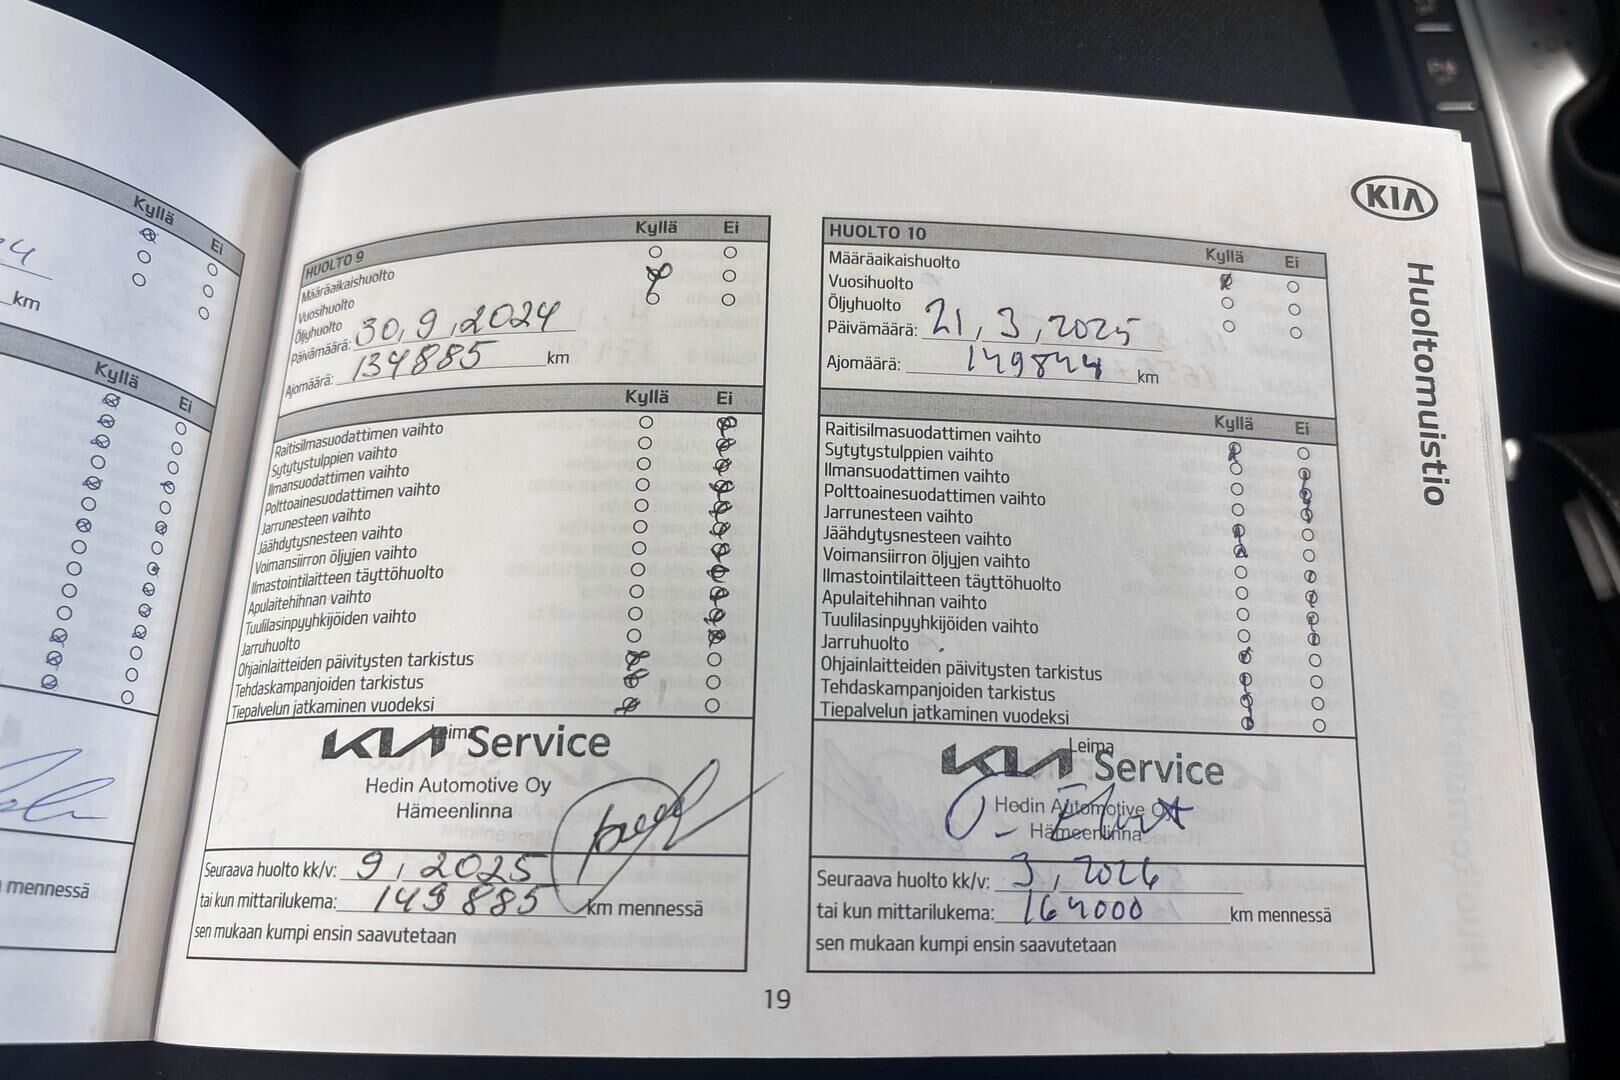 Kyllä
Ei
km
Kyllä
Ei
mennessä
HUOLTO 9 Kyllä Ei
Määräaikaishuolto
Vuosihuolto
Öljyhuolto
Päivämäärä: 30,9,2024
Ajomäärä: 134885 km
Kyllä Ei
Raitisilmasuodattimen vaihto
Sytytystulppien vaihto
Ilmansuodattimen vaihto
Polttoainesuodattimen vaihto
Jarrunesteen vaihto
Jäähdytysnesteen vaihto
Voimansiirron öljyjen vaihto
Ilmastointilaitteen täyttöhuolto
Apulaitehihnan vaihto
Tuulilasinpyyhkijöiden vaihto
Jarruhuolto
Ohjainlaitteiden päivitysten tarkistus
Tehdaskampanjoiden tarkistus
Tiepalvelun jatkaminen vuodeksi
KIA Service
Hedin Automotive Oy
Hämeenlinna
Seuraava huolto kk/v: 9, 2025
tai kun mittarilukema: 149885 km mennessä
sen mukaan kumpi ensin saavutetaan
HUOLTO 10 Kyllä Ei
Määräaikaishuolto
Vuosihuolto
Öljyhuolto
Päivämäärä: 21,3,2025
Ajomäärä: 149844 km
Kyllä Ei
Raitisilmasuodattimen vaihto
Sytytystulppien vaihto
Ilmansuodattimen vaihto
Polttoainesuodattimen vaihto
Jarrunesteen vaihto
Jäähdytysnesteen vaihto
Voimansiirron öljyjen vaihto
Ilmastointilaitteen täyttöhuolto
Apulaitehihnan vaihto
Tuulilasinpyyhkijöiden vaihto
Jarruhuolto
Ohjainlaitteiden päivitysten tarkistus
Tehdaskampanjoiden tarkistus
Tiepalvelun jatkaminen vuodeksi
Leima
KIA Service
Hedin Automotive Oy
Hämeenlinna
Seuraava huolto kk/v: 3, 2026
tai kun mittarilukema: 164000 km mennessä
sen mukaan kumpi ensin saavutetaan
KIA
Huoltomuistio
19